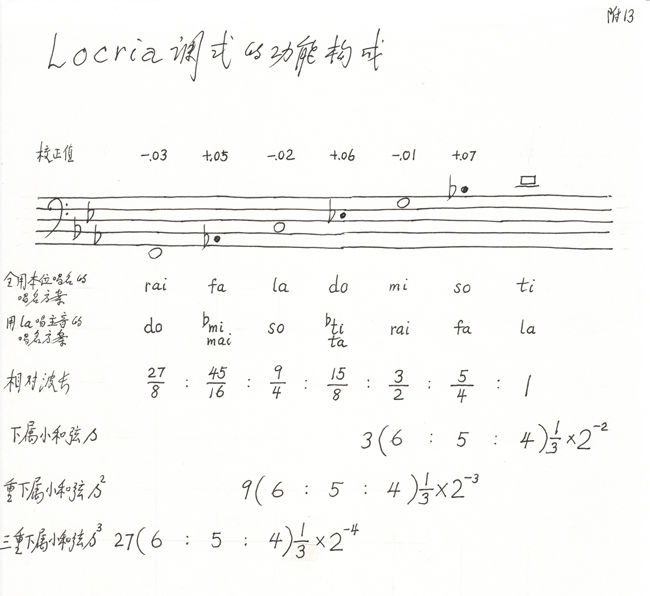 附13
Locria调式的功能构成
校正值 -.03 +.05 -.02 +.06 -.01 +.07
全用本位唱名的 rai fa la do mi so ti
唱名方案
用la唱主音的 do ♭mi so ♭ti rai fa la
唱名方案 mai ta
相对波长 27/8 : 45/16 : 9/4 : 15/8 : 3/2 : 5/4 : 1
下属小和弦s 3(6 : 5 : 4)1/3×2⁻²
重下属小和弦s² 9(6 : 5 : 4)1/3×2⁻³
三重下属小和弦s³ 27(6 : 5 : 4)1/3×2⁻⁴